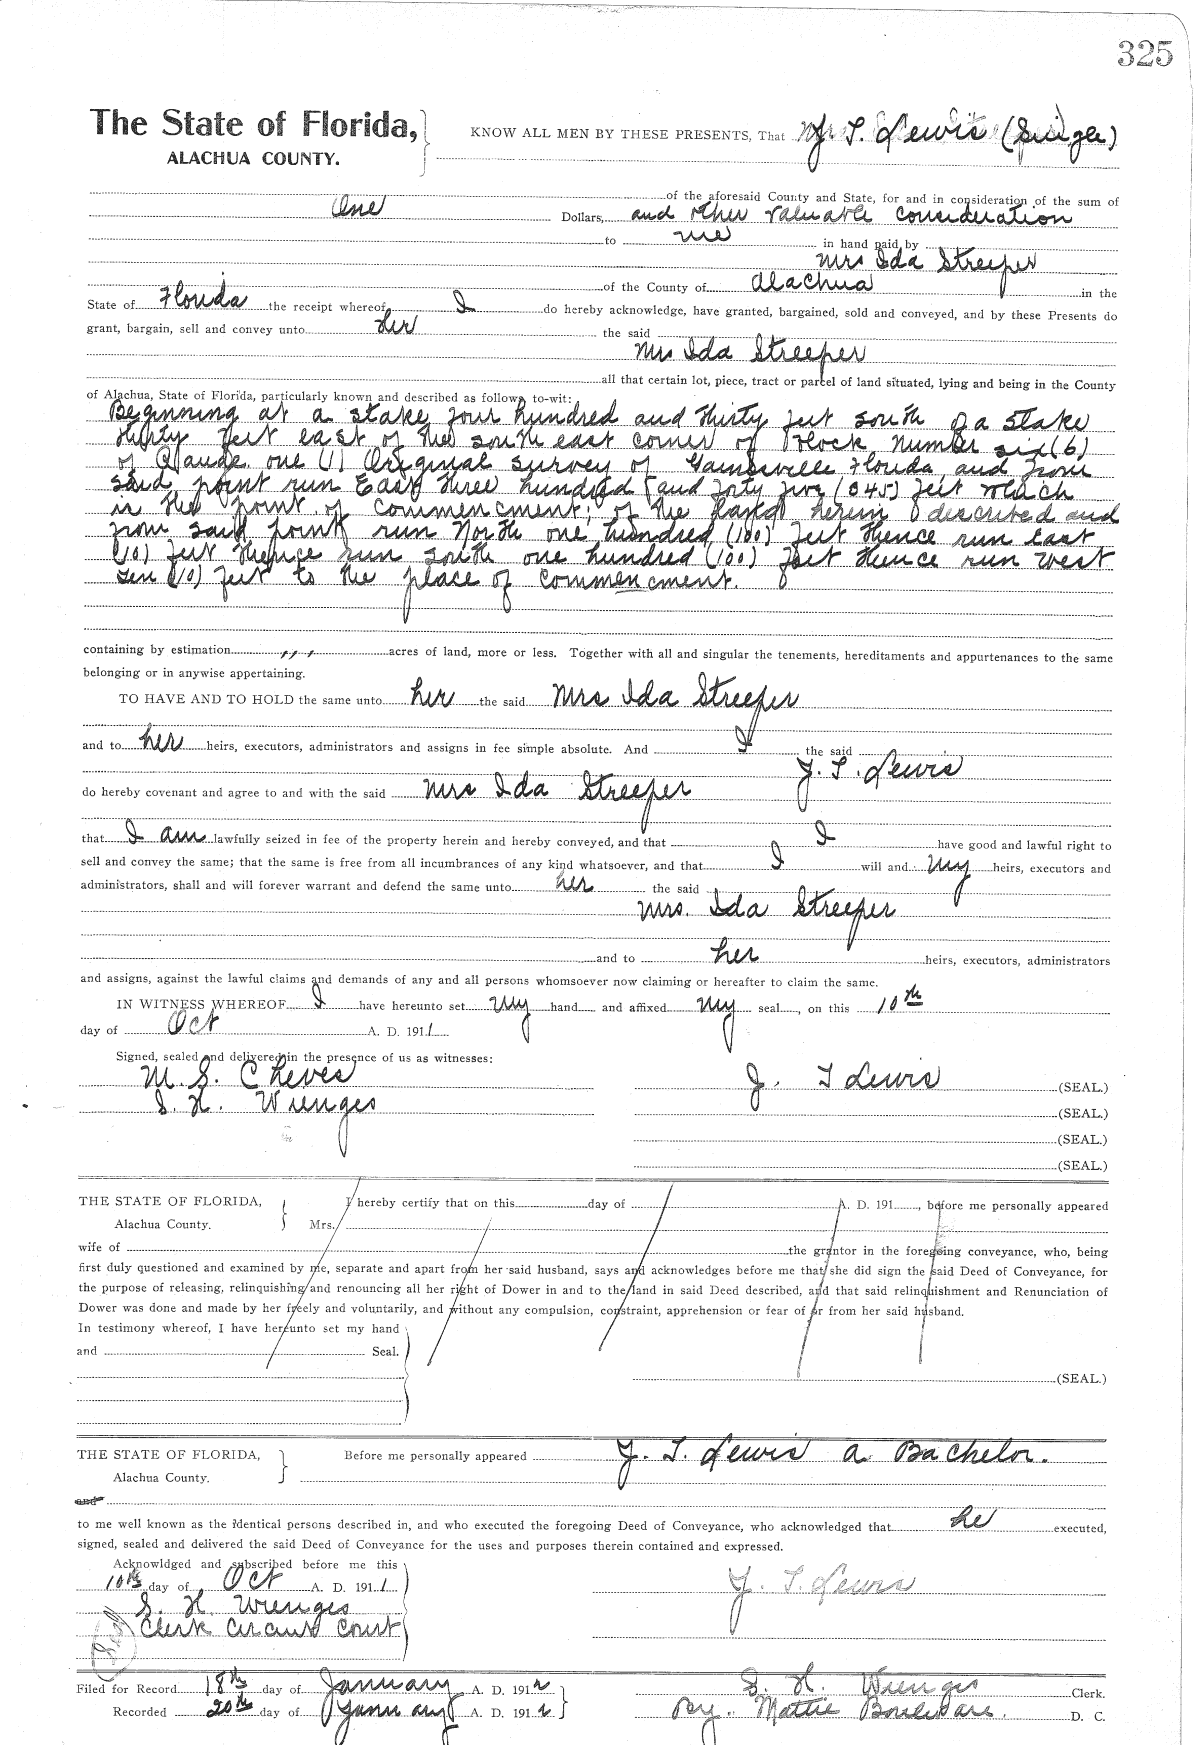 325
The State of Florida,
ALACHUA COUNTY.
KNOW ALL MEN BY THESE PRESENTS, That J. T. Lewis (Single)
of the aforesaid County and State, for and in consideration of the sum of
One Dollars, and other valuable consideration
to me in hand paid by
Mrs Ida Streeper
of the County of Alachua in the
State of Florida the receipt whereof I do hereby acknowledge, have granted, bargained, sold and conveyed, and by these Presents do
grant, bargain, sell and convey unto her the said
Mrs Ida Streeper
all that certain lot, piece, tract or parcel of land situated, lying and being in the County
of Alachua, State of Florida, particularly known and described as follows, to-wit:
Beginning at a stake four hundred and thirty feet south of a stake
thirty feet east of the south east corner of Block number six (6)
of Range one (1) Original survey of Gainesville Florida and from
said point run East three hundred and forty five (345) feet which
is the point of commencment, of the land herein described and
from said point run North one hundred (100) feet thence run east
(10) feet thence run south one hundred (100) feet thence run west
ten (10) feet to the place of commencment.
containing by estimation " " acres of land, more or less. Together with all and singular the tenements, hereditaments and appurtenances to the same
belonging or in anywise appertaining.
TO HAVE AND TO HOLD the same unto her the said Mrs Ida Streeper
and to her heirs, executors, administrators and assigns in fee simple absolute. And I the said
J. T. Lewis
do hereby covenant and agree to and with the said Mrs Ida Streeper
that I am lawfully seized in fee of the property herein and hereby conveyed, and that I have good and lawful right to
sell and convey the same; that the same is free from all incumbrances of any kind whatsoever, and that I will and my heirs, executors and
administrators, shall and will forever warrant and defend the same unto her the said
Mrs. Ida Streeper
and to her heirs, executors, administrators
and assigns, against the lawful claims and demands of any and all persons whomsoever now claiming or hereafter to claim the same.
IN WITNESS WHEREOF I have hereunto set my hand and affixed my seal, on this 10th
day of Oct A. D. 1911
Signed, sealed and delivered in the presence of us as witnesses:
M. S. Cheves
S. H. Wienges
J. T Lewis (SEAL.)
(SEAL.)
(SEAL.)
(SEAL.)
THE STATE OF FLORIDA,
Alachua County.
I hereby certify that on this day of A. D. 191, before me personally appeared
Mrs.
wife of the grantor in the foregoing conveyance, who, being
first duly questioned and examined by me, separate and apart from her said husband, says and acknowledges before me that she did sign the said Deed of Conveyance, for
the purpose of releasing, relinquishing and renouncing all her right of Dower in and to the land in said Deed described, and that said relinquishment and Renunciation of
Dower was done and made by her freely and voluntarily, and without any compulsion, constraint, apprehension or fear of or from her said husband.
In testimony whereof, I have hereunto set my hand
and Seal.
(SEAL.)
THE STATE OF FLORIDA,
Alachua County.
Before me personally appeared J. T. Lewis a Bachelor.
and
to me well known as the identical persons described in, and who executed the foregoing Deed of Conveyance, who acknowledged that he executed,
signed, sealed and delivered the said Deed of Conveyance for the uses and purposes therein contained and expressed.
Acknowldged and subscribed before me this
10th day of Oct A. D. 1911
S. H. Wienges
Clerk Circuit Court
(Seal)
J. T. Lewis
Filed for Record 18th day of January A. D. 1912
Recorded 20th day of January A. D. 1912
S. H. Wienges Clerk.
By. Mattie D. C.